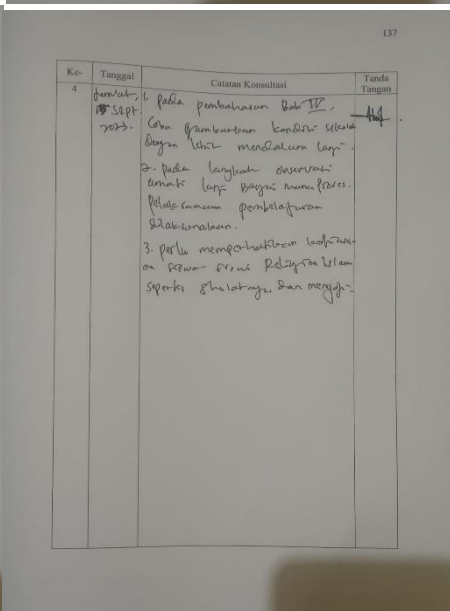 137
Ke- Tanggal Catatan Konsultasi Tanda Tangan
4 Jum'at, 15 Sept 2023.
1. pada pembahasan Bab IV.
Coba gambarkan kondisi sekolah
dengan lebih mendalam lagi.
2. pada langkah observasi
amati lagi bagaimana proses
pelaksanaan pembelajaran
dilaksanakan.
3. perlu memperhatikan
siswa- siswi Religius Islam
seperti shalatnya, dan mengaji.